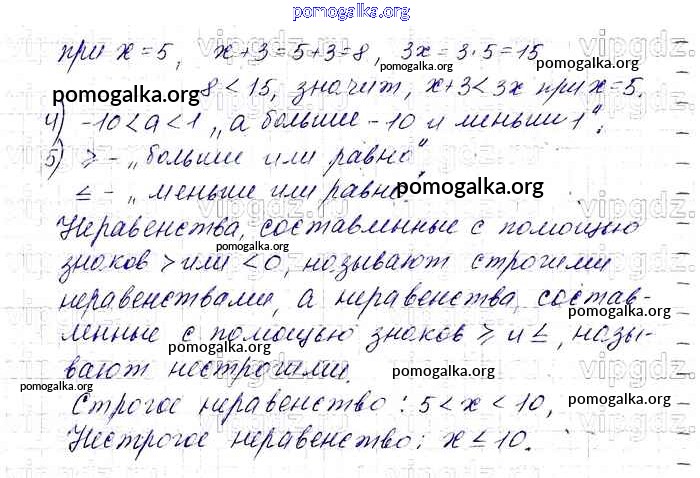 pomogalka.org
при x = 5, x+3=5+3=8, 3x = 3·5=15
8 < 15, значит, x+3<3x при x=5.
pomogalka.org
4) -10<a<1 „а больше -10 и меньше 1";
5) ≥ - „больше или равно"
≤ - „меньше или равно".
pomogalka.org
Неравенства, составленные с помощью
pomogalka.org
знаков > или <0, называют строгими
неравенствами, а неравенства, состав-
pomogalka.org
ленные с помощью знаков ≥ и ≤, назы-
pomogalka.org
вают нестрогими.
pomogalka.org pomogalka.org
Строгое неравенство: 5 < x < 10,
Нестрогое неравенство: x ≤ 10.
pomogalka.org